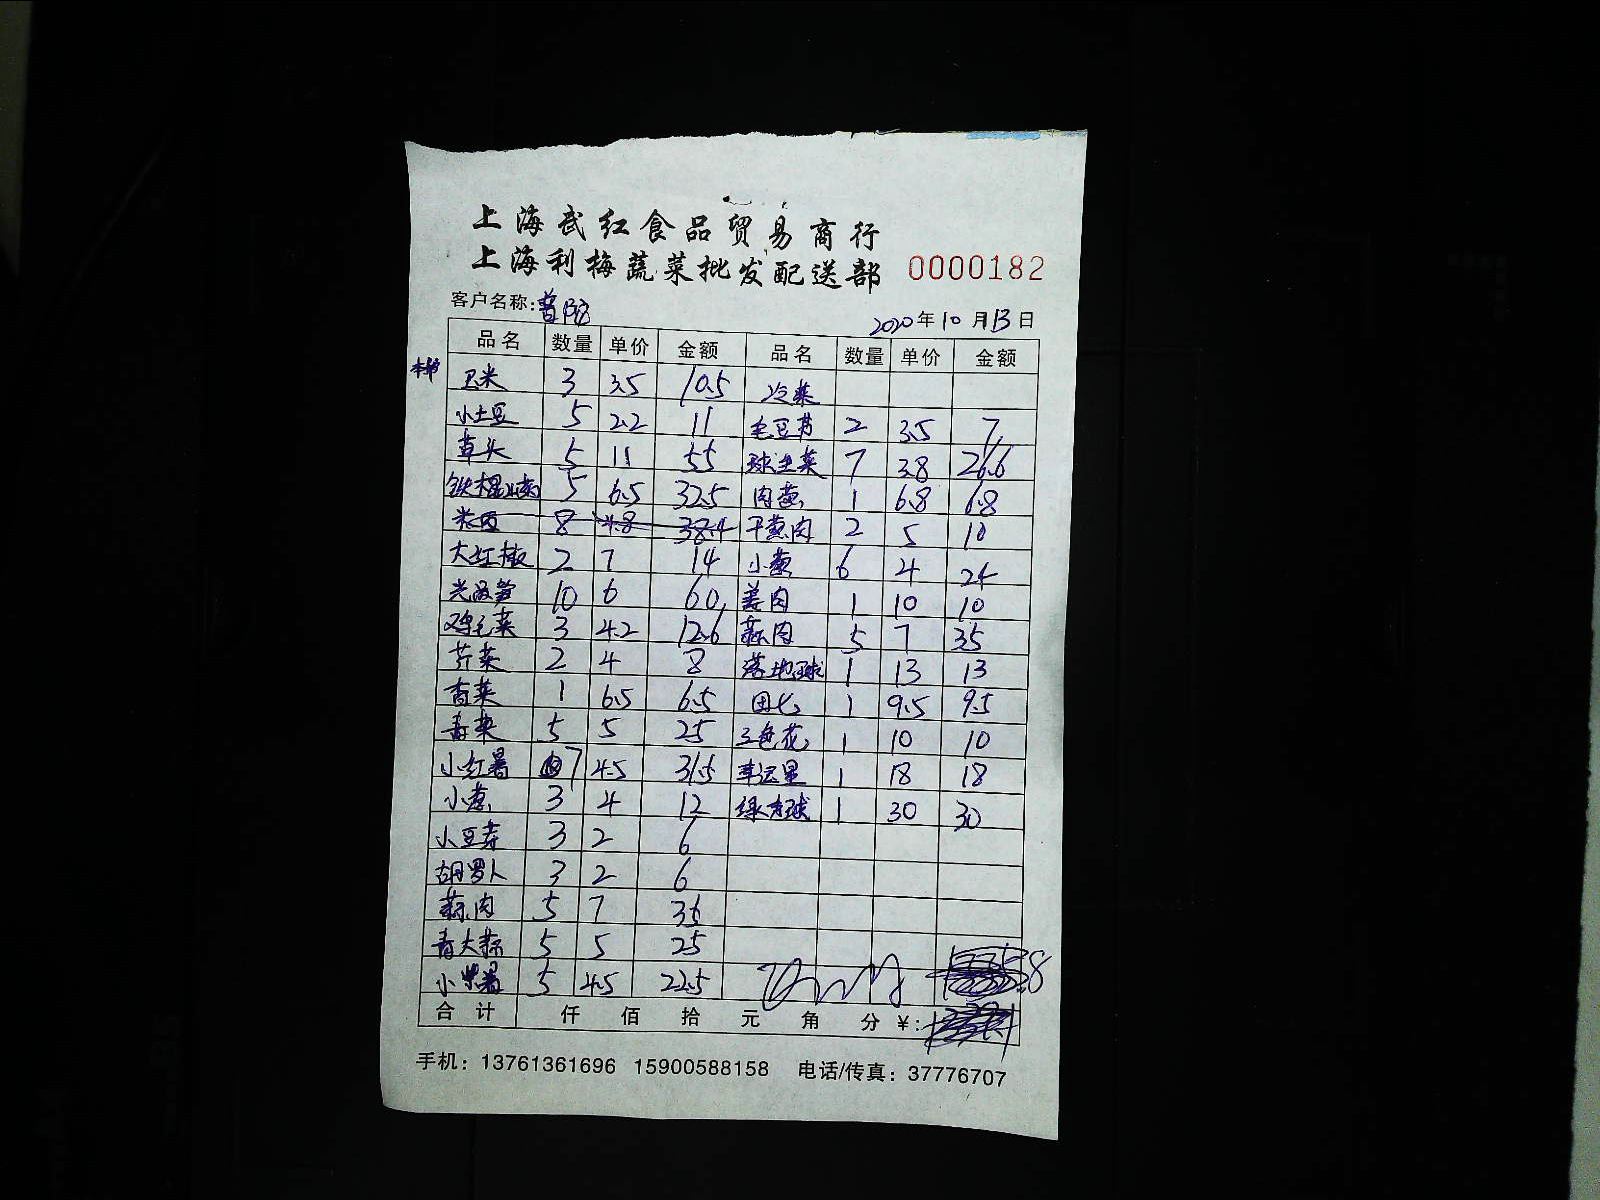 上海武红食品贸易商行
上海利梅蔬菜批发配送部 0000182
客户名称:普陀 2020年10月13日
品名 数量 单价 金额 品名 数量 单价 金额
玉米 3 3.5 10.5 冷菜
小土豆 5 2.2 11 毛豆节 2 3.5 7
草头 5 11 55 球生菜 7 3.8 26.6
铁棍山药 5 6.5 32.5 肉葱 1 6.8 6.8
8 4.8 38.4 干葱肉 2 5 10
大红椒 2 7 14 小葱 6 4 24
10 6 60 姜肉 1 10 10
鸡毛菜 3 4.2 12.6 蒜肉 5 7 35
芹菜 2 4 8 落地球 1 13 13
香菜 1 6.5 6.5 团七 1 9.5 9.5
青夹 5 5 25 三色花 1 10 10
小红薯 7 4.5 31.5 幸运星 1 18 18
小葱 3 4 12 绿方球 1 30 30
小豆芽 3 2 6
胡罗卜 3 2 6
蒜肉 5 7 35
青大蒜 5 5 25
小紫薯 5 4.5 22.5
合计 仟 佰 拾 元 角 分 ¥:
手机: 13761361696 15900588158 电话/传真: 37776707